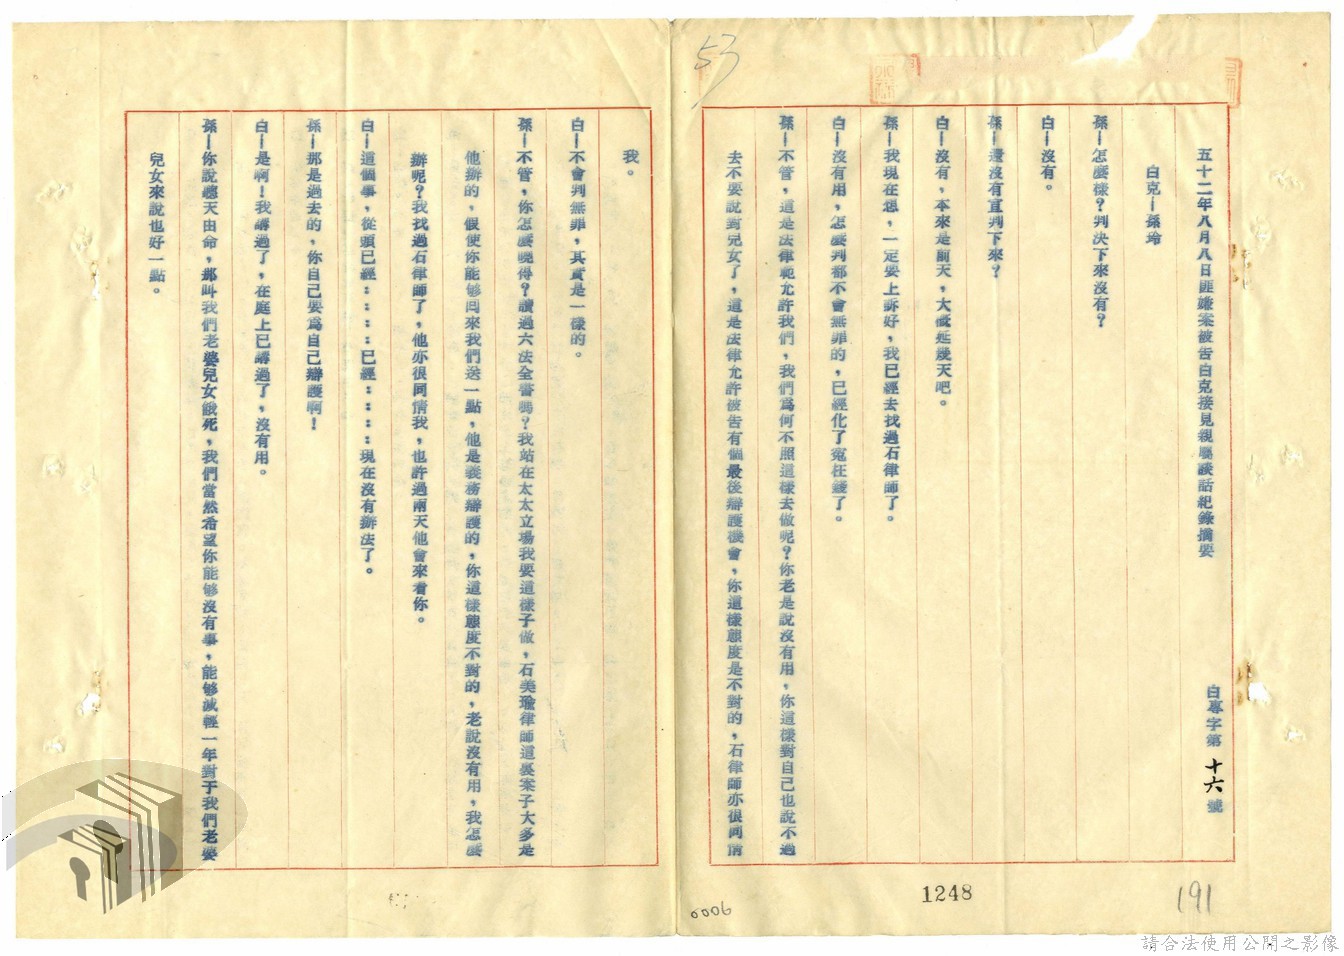 53
五十二年八月八日匪嫌案被告白克接見親屬談話紀錄摘要
白專字第十六號
白克—孫玲
孫—怎麼樣？判決下來沒有？
白—沒有。
孫—還沒有宣判下來？
白—沒有，本來是前天，大概延幾天吧。
孫—我現在想，一定要上訴好，我已經去找過石律師了。
白—沒有用，怎麼判都不會無罪的，已經化了冤枉錢了。
孫—不管，這是法律範允許我們，我們爲何不照這樣去做呢？你老是說沒有用，你這樣對自己也說不過
去不要說對兒女了，這是法律允許被告有個最後辯護機會，你這樣態度是不對的，石律師亦很同情
我。
白—不會判無罪，其實是一樣的。
孫—不管，你怎麼曉得？讀過六法全書嗎？我站在太太立場我要這樣子做，石美瑜律師這裏案子大多是
他辦的，假使你能够回來我們送一點，他是義務辯護的，你這樣態度不對的，老說沒有用，我怎麼
辦呢？我找過石律師了，他亦很同情我，也許過兩天他會來看你。
白—這個事，從頭已經：：：：已經：：：：現在沒有辦法了。
孫—那是過去的，你自己要爲自己辯護啊！
白—是啊！我講過了，在庭上已講過了，沒有用。
孫—你說聽天由命，那叫我們老婆兒女餓死，我們當然希望你能够沒有事，能够減輕一年對于我們老婆
兒女來說也好一點。
0006
1248
191
請合法使用公開之影像